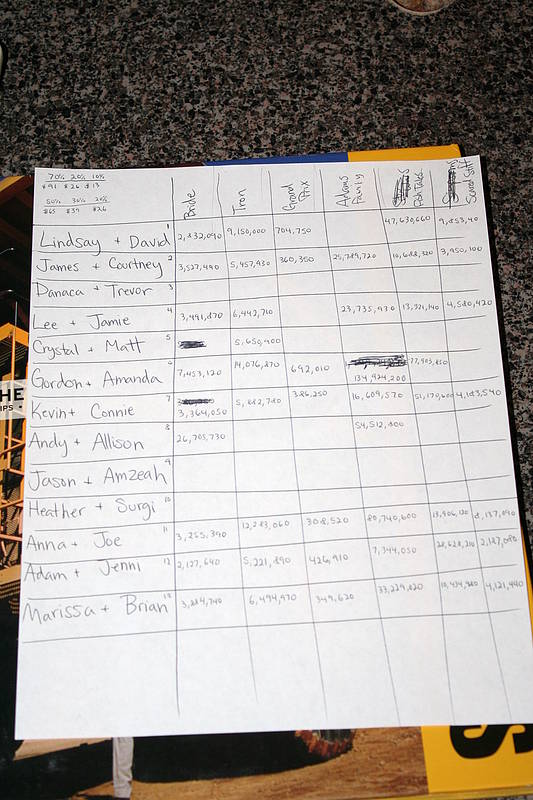 70% 20% 10%
$91 $26 $13
50% 30% 20%
$65 $39 $26
Bride Tron Grand Prix Adams Family Fish Tales Scared Stiff
Lindsay + David 1 2,832,090 9,150,000 704,750 47,630,660 9,853,40
James + Courtney 2 3,527,490 5,457,930 360,350 25,789,720 3,950,100
Danaca + Trevor 3
Lee + Jamie 4 3,491,870 6,442,710 23,735,930 13,321,140 4,580,420
Crystal + Matt 5 5,650,400
Gordon + Amanda 6 7,453,120 14,076,870 692,010 134,924,200 77,905,850
Kevin + Connie 7 3,364,050 5,882,780 386,250 16,609,570 51,170,600 4,183,540
Andy + Allison 8 26,705,730 54,512,800
Jason + Amzeah 9
Heather + Surgi 10
Anna + Joe 11 3,255,390 12,283,060 308,520 80,740,600 13,906,120 8,137,090
Adam + Jenni 12 2,127,640 5,221,890 426,910 7,344,050 28,628,210 2,187,080
Marissa + Brian 13 3,284,740 6,494,970 349,620 33,229,820 10,434,980 4,121,440
HE
IPS
S